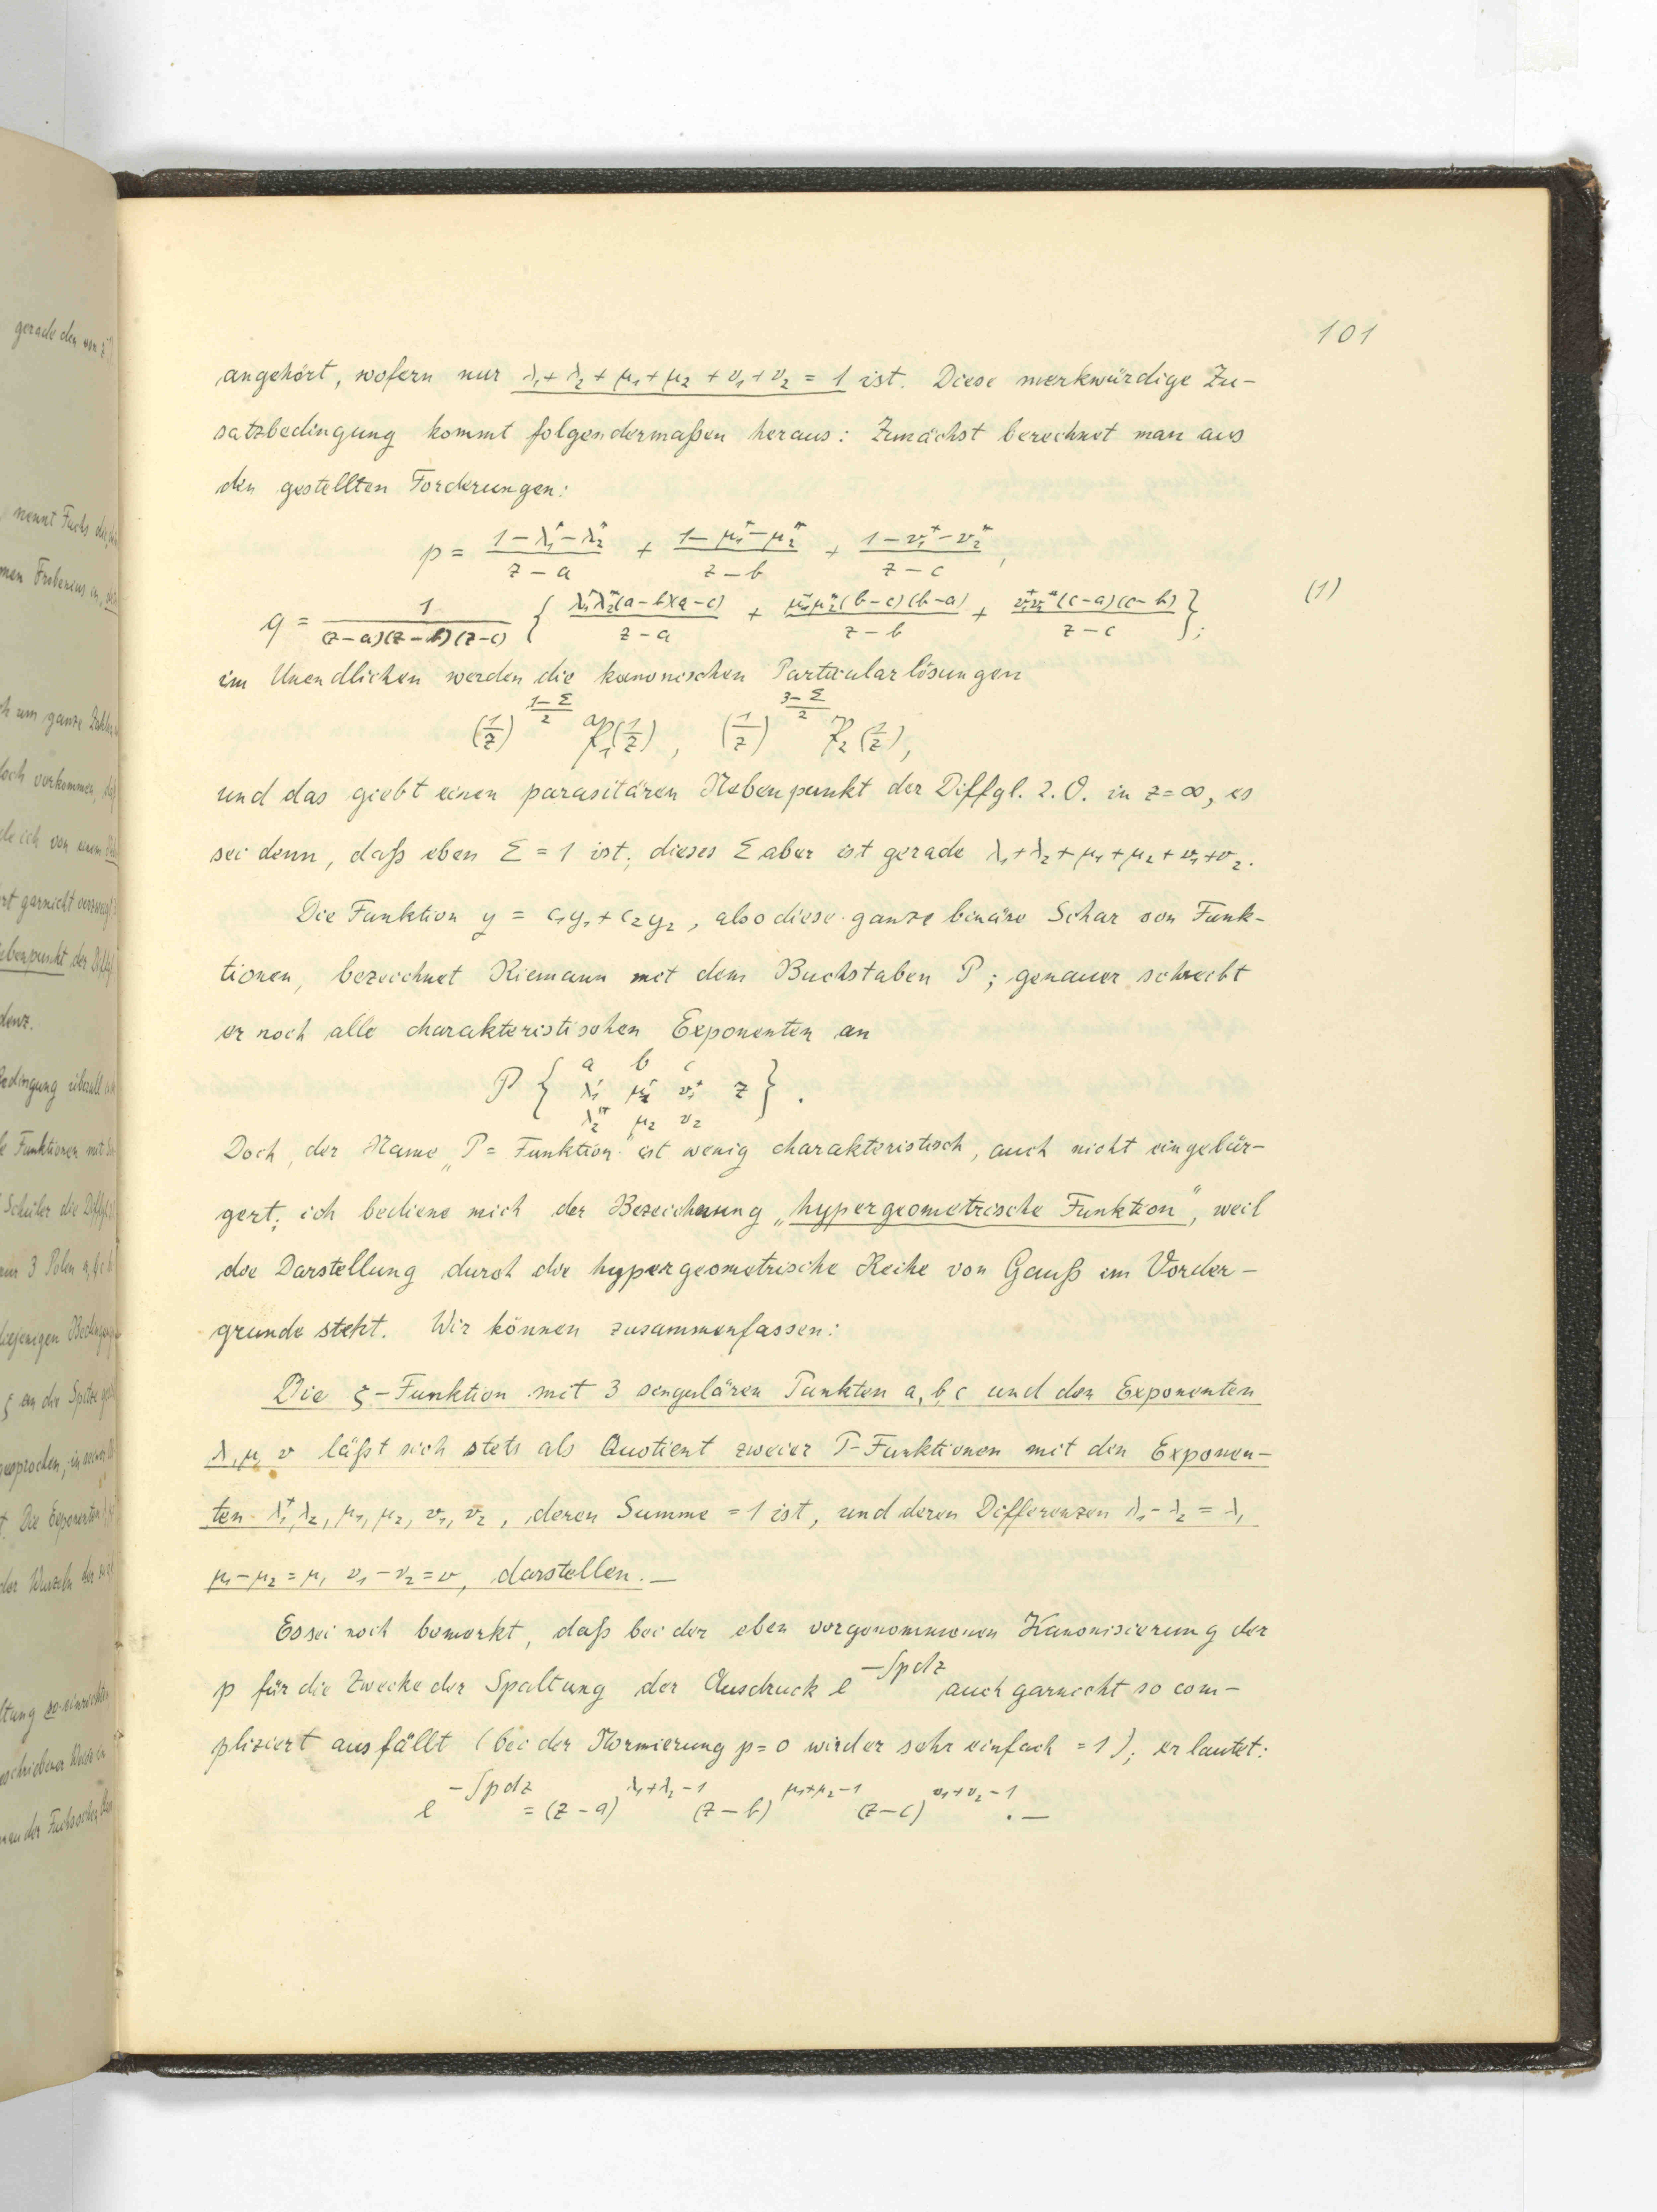 101
angehört, wofern nur λ₁+λ₂+μ₁+μ₂+ν₁+ν₂ = 1 ist. Diese merkwürdige Zu-
satzbedingung kommt folgendermaßen heraus: Zunächst berechnet man aus
den gestellten Forderungen:
p = (1-λ₁'-λ₂'')/(z-a) + (1-μ₁'-μ₂'')/(z-b) + (1-ν₁'-ν₂'')/(z-c),
q = 1/((z-a)(z-b)(z-c)) { λ₁'λ₂''(a-b)(a-c)/(z-a) + μ₁'μ₂''(b-c)(b-a)/(z-b) + ν₁'ν₂''(c-a)(c-b)/(z-c) }; (1)
im Unendlichen werden die kanonischen Particularlösungen
(1/z)^((1-Σ)/2) 𝔓₁(1/z), (1/z)^((3-Σ)/2) 𝔓₂(1/z),
und das giebt einen parasitären Nebenpunkt der Diffgl. 2. O. in z=∞, es
sei denn, daß eben Σ = 1 ist; dieses Σ aber ist gerade λ₁+λ₂+μ₁+μ₂+ν₁+ν₂.
Die Funktion y = c₁y₁+c₂y₂, also diese ganze binäre Schar von Funk-
tionen, bezeichnet Riemann mit dem Buchstaben P; genauer schreibt
er noch alle charakteristischen Exponenten an
a b c
P { λ₁' μ₁' ν₁' z } .
λ₂'' μ₂ ν₂
Doch, der Name „P = Funktion" ist wenig charakteristisch, auch nicht eingebür-
gert; ich bediene mich der Bezeichnung „hypergeometrische Funktion", weil
die Darstellung durch die hypergeometrische Reihe von Gauß im Vorder-
grunde steht. Wir können zusammenfassen:
Die ζ-Funktion mit 3 singulären Punkten a, b, c und den Exponenten
λ, μ, ν läßt sich stets als Quotient zweier P-Funktionen mit den Exponen-
ten λ₁', λ₂, μ₁, μ₂, ν₁, ν₂, deren Summe = 1 ist, und deren Differenzen λ₁-λ₂ = λ,
μ₁-μ₂ = μ, ν₁-ν₂ = ν, darstellen. —
Es sei noch bemerkt, daß bei der eben vorgenommenen Kanonisierung der
p für die Zwecke der Spaltung der Ausdruck e^(-∫pdz) auch garnicht so com-
pliziert ausfällt (bei der Normierung p=0 wird er sehr einfach = 1); er lautet:
e^(-∫pdz) = (z-a)^(λ₁+λ₂-1) (z-b)^(μ₁+μ₂-1) (z-c)^(ν₁+ν₂-1) . —